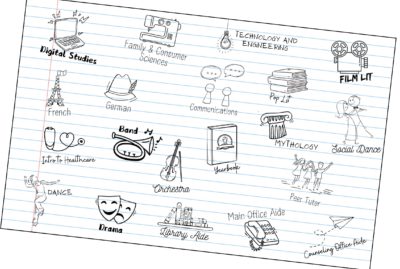 TECHNOLOGY AND
ENGINEERING
Digital Studies
Family & Consumer
Sciences
FILM LIT
Pop Lit
French
German
Communications
MYTHOLOGY
Social Dance
Band
Intro to Healthcare
Yearbook
Orchestra
Peer Tutor
DANCE
Drama
Library Aide
Main Office Aide
Counseling Office Aide